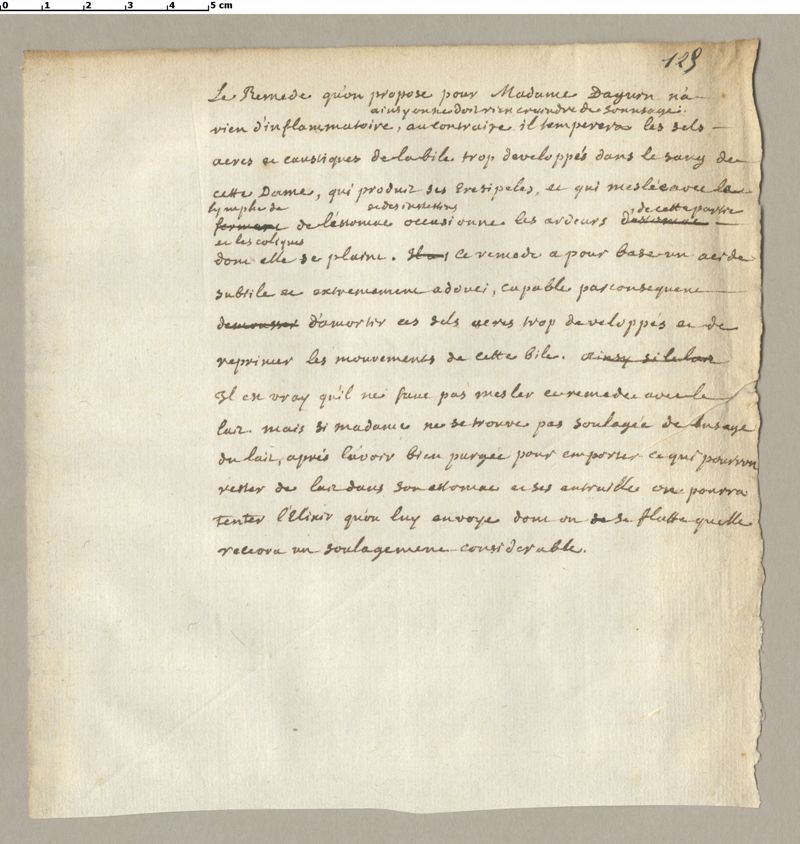 0 1 2 3 4 5 cm
129
Le Remede qu'on propose pour Madame Dayurn n'a
ainsy on ne doit rien craindre de son usage.
rien d'inflammatoire, au contraire il temperera les sels
acres et caustiques de la bile trop developpés dans le sang de
cette Dame, qui produit ses Eresipeles, et qui meslée avec la
lymphe de et des intestins de cette partie
ferment de l'éstomac occasionne les ardeurs d'estomac
et les coliques
dont elle se plaint. Il a ce remede a pour base un acide
subtile et extremement adouci, capable par consequent
demousser d'amortir ces sels acres trop developpés et de
reprimer les mouvements de cette bile. ainsy si le lait
Il est vray qu'il ne faut pas mesler ce remede avec le
lait. mais si madame ne se trouve pas soulagée de l'usage
du lait, aprés l'avoir bien purgée pour emporter ce qui pourroit
rester de lait dans son estomac et ses entrailles on pourra
tenter l'Elixir qu'on luy envoye dont on se flatte quelle
recevra un soulagement considerable.